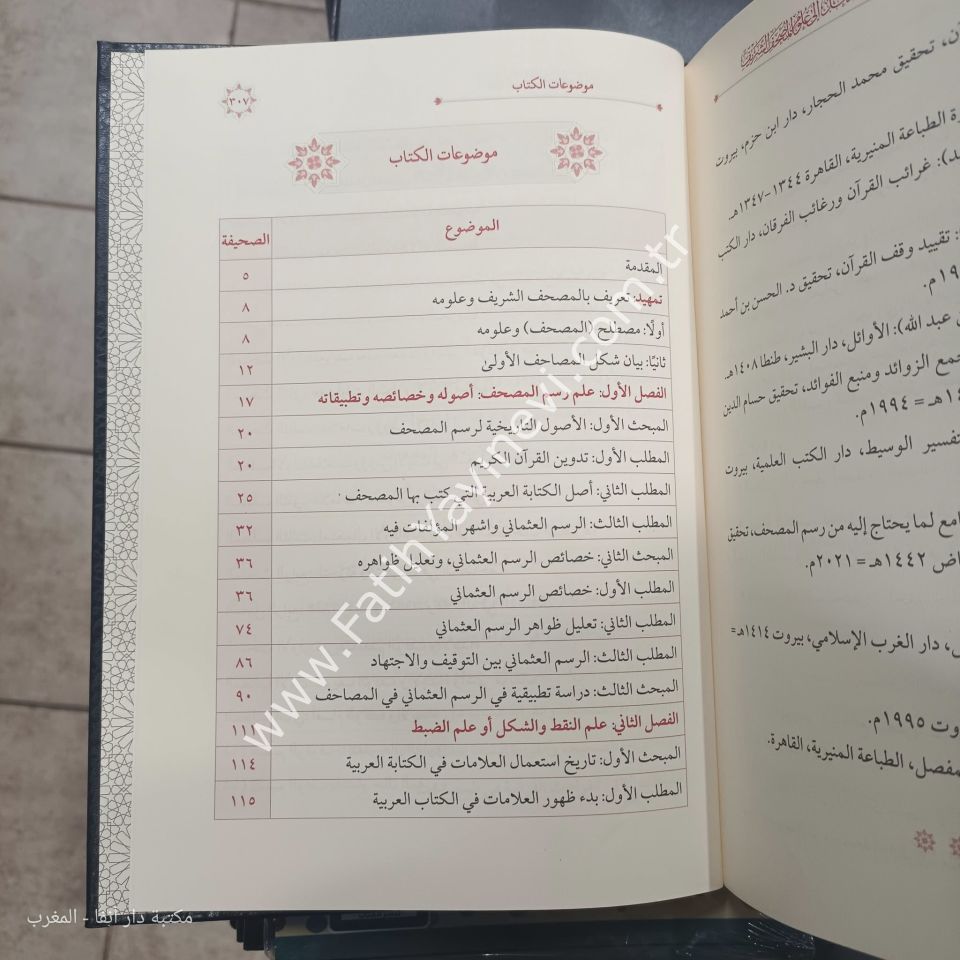 موضوعات الكتاب
٣٠٧
موضوعات الكتاب
الموضوع الصحيفة
المقدمة ٥
تمهيد: تعريف بالمصحف الشريف وعلومه ٨
أولًا: مصطلح (المصحف) وعلومه ٨
ثانيًا: بيان شكل المصاحف الأولىٰ ١٢
الفصل الأول: علم رسم المصحف: أصوله وخصائصه وتطبيقاته ١٧
المبحث الأول: الأصول التاريخية لرسم المصحف ٢٠
المطلب الأول: تدوين القرآن الكريم ٢٠
المطلب الثاني: أصل الكتابة العربية التي كتب بها المصحف ٢٥
المطلب الثالث: الرسم العثماني وأشهر المؤلفات فيه ٣٢
المبحث الثاني: خصائص الرسم العثماني، وتعليل ظواهره ٣٦
المطلب الأول: خصائص الرسم العثماني ٣٦
المطلب الثاني: تعليل ظواهر الرسم العثماني ٧٤
المطلب الثالث: الرسم العثماني بين التوقيف والاجتهاد ٨٦
المبحث الثالث: دراسة تطبيقية في الرسم العثماني في المصاحف ٩٠
الفصل الثاني: علم النقط والشكل أو علم الضبط ١١١
المبحث الأول: تاريخ استعمال العلامات في الكتابة العربية ١١٤
المطلب الأول: بدء ظهور العلامات في الكتاب العربية ١١٥
تحقيق محمد الحجار، دار ابن حزم، بيروت
الطباعة المنيرية، القاهرة ١٣٤٤-١٣٤٧هـ.
غرائب القرآن ورغائب الفرقان، دار الكتب
تقييد وقف القرآن، تحقيق د. الحسن بن أحمد
عبد الله): الأوائل، دار البشير، طنطا ١٤٠٨هـ.
جمع الزوائد ومنبع الفوائد، تحقيق حسام الدين
هـ = ١٩٩٤م.
تفسير الوسيط، دار الكتب العلمية، بيروت
لما يحتاج إليه من رسم المصحف، تحقيق
١٤٤٢هـ = ٢٠٢١م.
دار الغرب الإسلامي، بيروت ١٤١٤هـ =
١٩٩٥م.
الطباعة المنيرية، القاهرة.
www.FatihYayinevi.com.tr
مكتبة دار انفا - المغرب